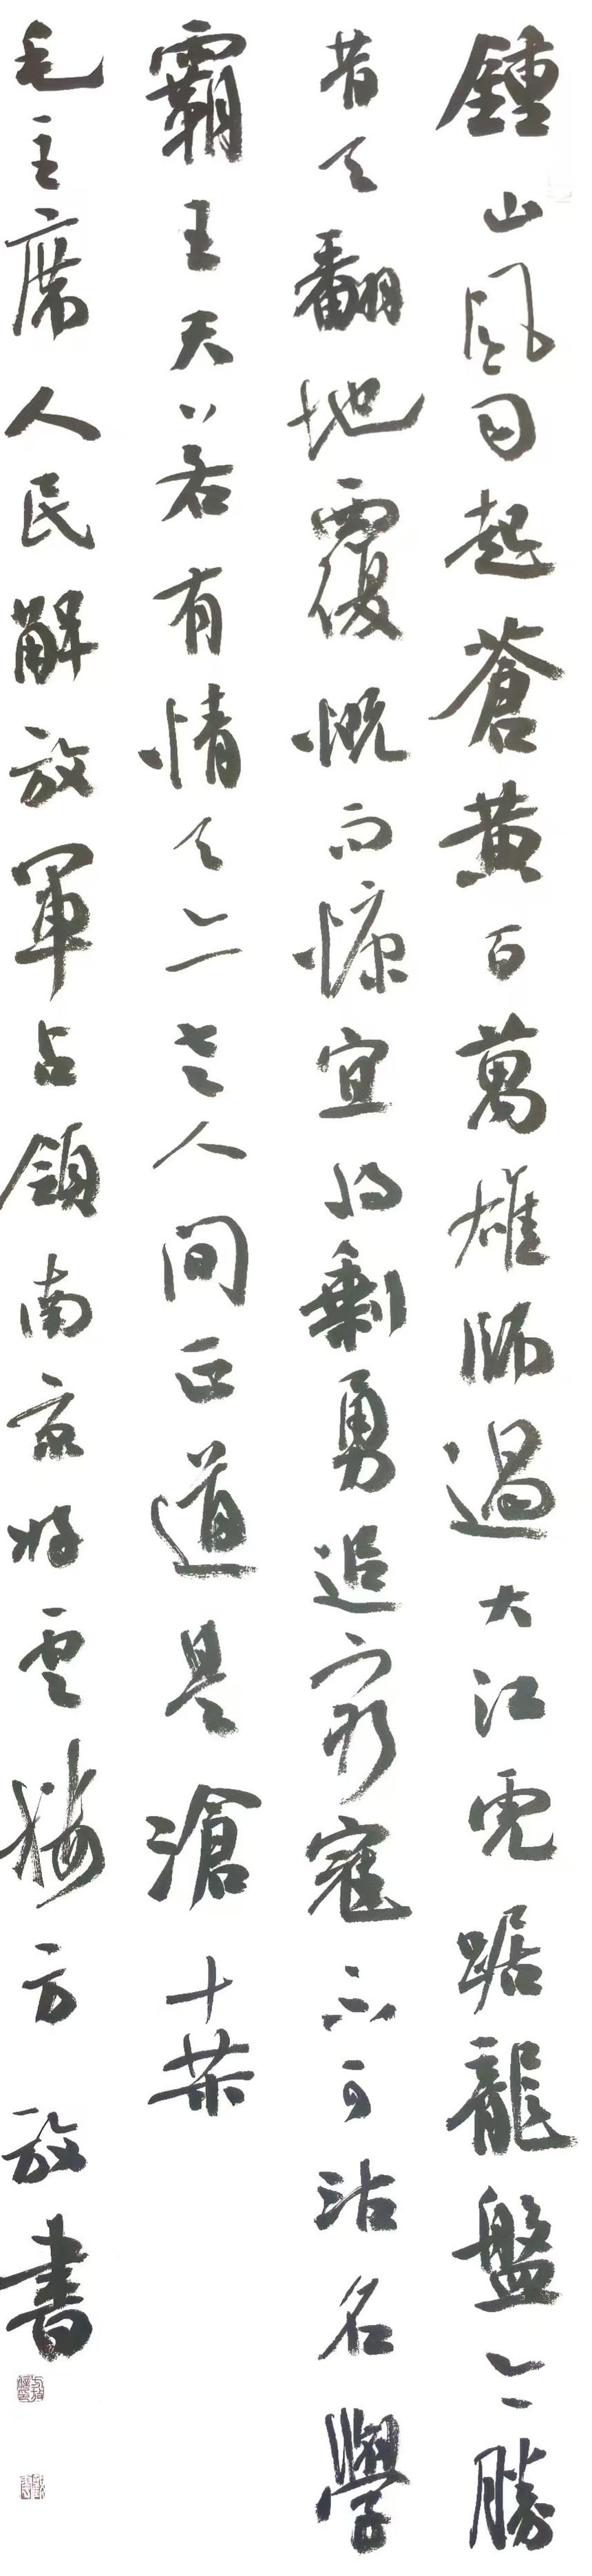 鍾山風雨起蒼黃百萬雄師過大江虎踞龍盤今勝
昔天翻地覆慨而慷宜將剩勇追窮寇不可沽名學
霸王天若有情天亦老人間正道是滄桑
毛主席人民解放軍占領南京雲方放書